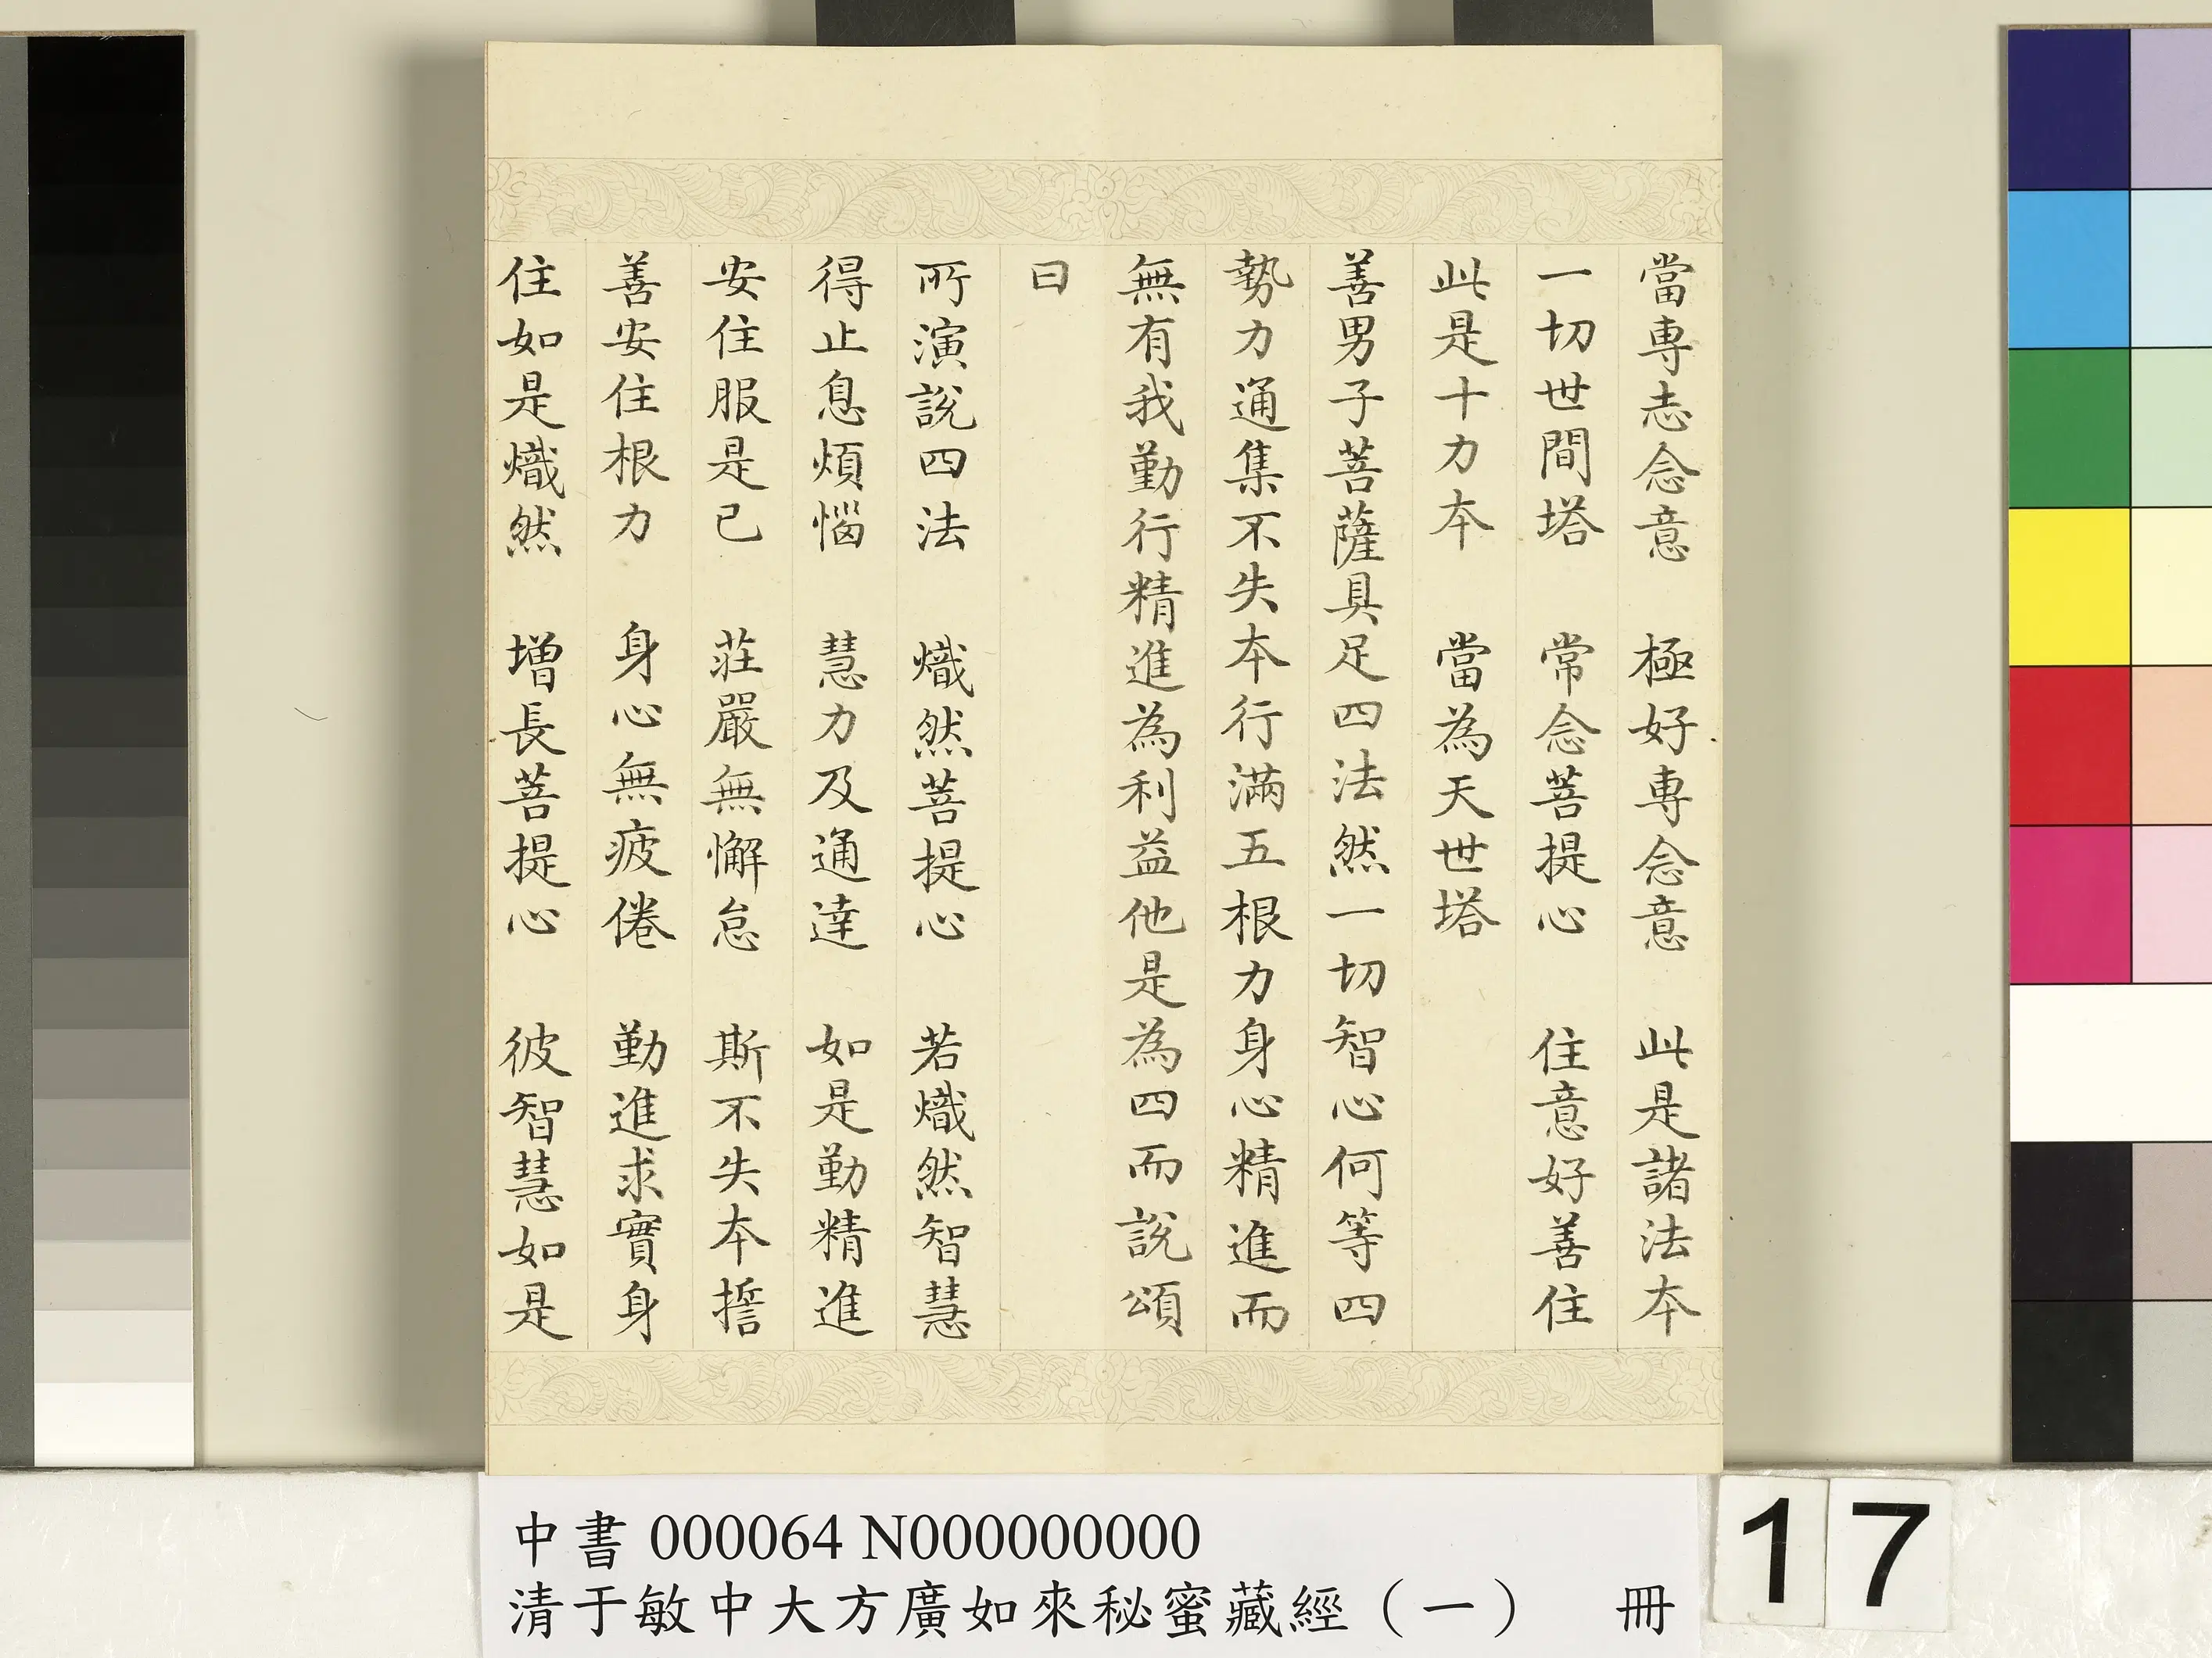 當專志念意　極好專念意　此是諸法本
一切世間塔　常念菩提心　住意好善住
此是十力本　當為天世塔
善男子菩薩具足四法然一切智心何等四
勢力通集不失本行滿五根力身心精進而
無有我勤行精進為利益他是為四而說頌
曰
所演說四法　熾然菩提心　若熾然智慧
得止息煩惱　慧力及通達　如是勤精進
安住服是已　莊嚴無懈怠　斯不失本擔
善安住根力　身心無疲倦　勤進求實身
住如是熾然　增長菩提心　彼智慧如是
中書 000064 N000000000
清于敏中大方廣如來秘蜜藏經（一）　冊
17